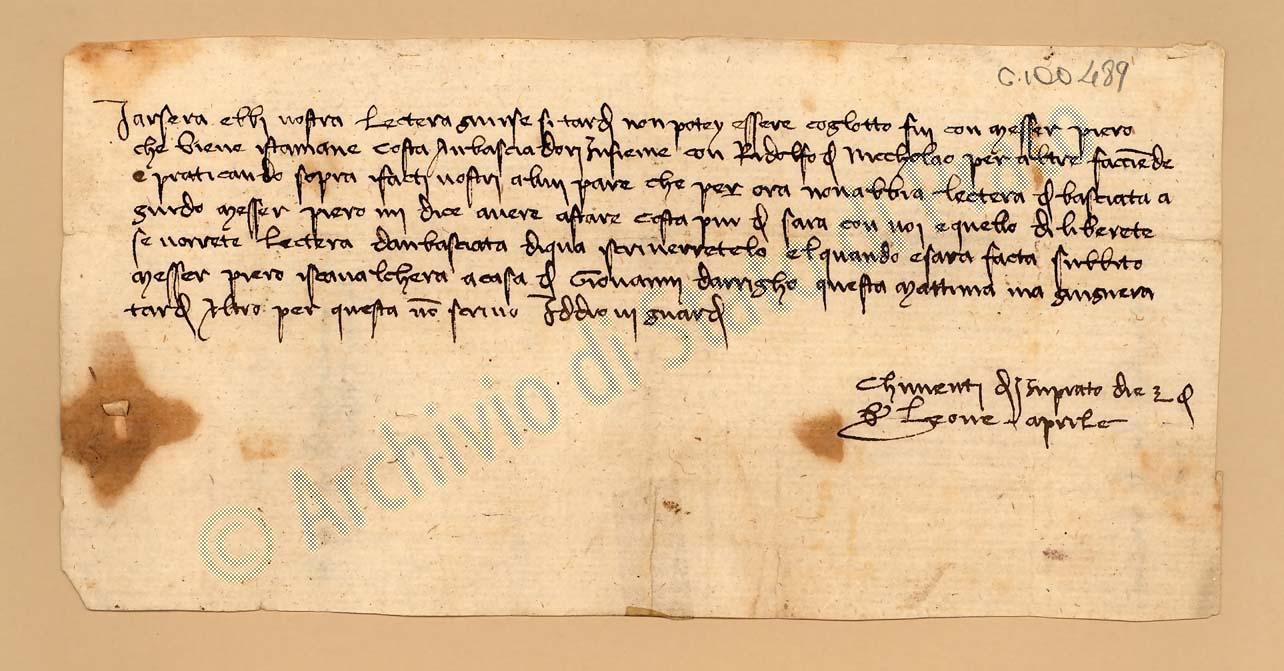 C.100 489
Jarsera ebbi vostra lectera giunse si tardj non potey essere coglotto fui con messer piero
che viene istamane costa Anbasciadori Insieme con Ridolfo dj Niccholao per altre facciende
e praticando sopra ifacti vostri alui pare che per ora nonabbia lectera dj basciata a
guido messer piero mi dice avere affare costa pur dj sara con voi e quello diliberete
se vorrete lectera danbasciata diqua iscriverretelo elquando esara facta subbito
messer piero iscavalchera acasa dj Giovanni darrigho questa mattina ma giugnera
tardj Altro per questa non scrivo Iddio vi guardj
Chimenti dj Inprato die 3 dj
Leone aprile
© Archivio di Stato